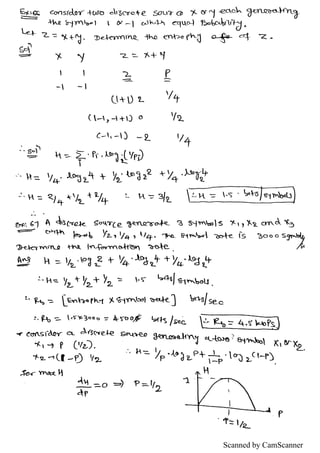 Ex:66 consider two discrete source x or y each generating
the symbol 1 or -1 with equal Probability.
Let Z = x+y. Determine the entrophy of Z.
Sol^n
X Y Z = X+Y
1 1 Z P
-1 -1
(1+1) 2 1/4
(1-1, -1+1) 0 1/2
(-1,-1) -2 1/4
∴ Sol^n H = Σ_i Pi · log_2 (1/Pi)
∴ H = 1/4 · log_2 4 + 1/2 · log_2 2 + 1/4 · log_2 4
∴ H = 2/4 + 1/2 + 2/4 ∴ H = 3/2 ∴ H = 1.5 · bits/symbols
Ex: 67 A discrete source generate 3 symbols x1, x2 and x3
with prob 1/2, 1/4, 1/4. The symbol rate is 3000 symbols/s
Determine the information rate.
Ans H = 1/2 · log_2 2 + 1/4 · log_2 4 + 1/4 · log_2 4
∴ H = 1/2 + 1/2 + 1/2 = 1.5 bits/symbols.
∴ Rb = [Entrophy × symbol rate] bits/sec
∴ Rb = 1.5×3000 = 4500 bits/sec ∴ Rb = 4.5 kbps
* consider a discrete source generating a two symbol x1 or x2.
x1 → P (1/2).
x2 → (1-P) 1/2 ∴ H = 1/P · log_2 P + 1/1-P · log_2 (1-P).
for max H
dH/dP = 0 ⇒ P = 1/2
H
1
P
P = 1/2
Scanned by CamScanner